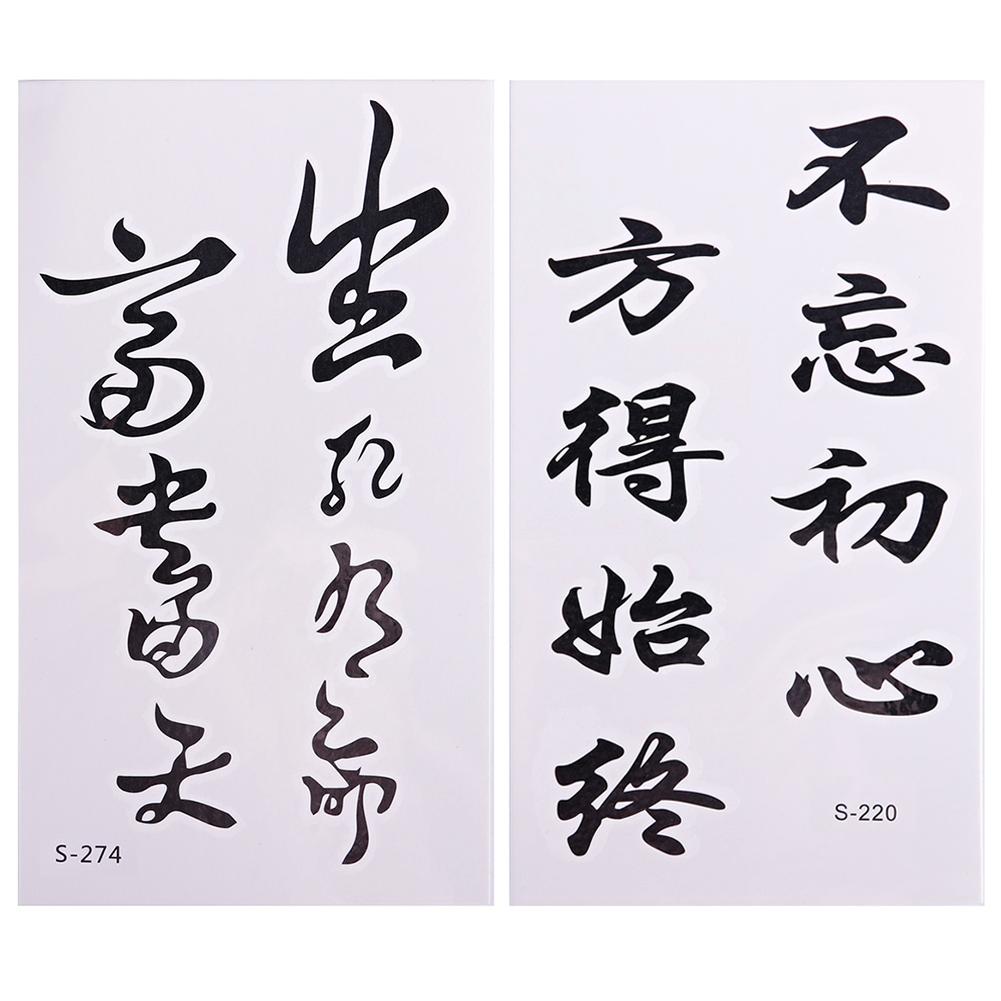 生死有命
富贵由天
S-274
不忘初心
方得始终
S-220